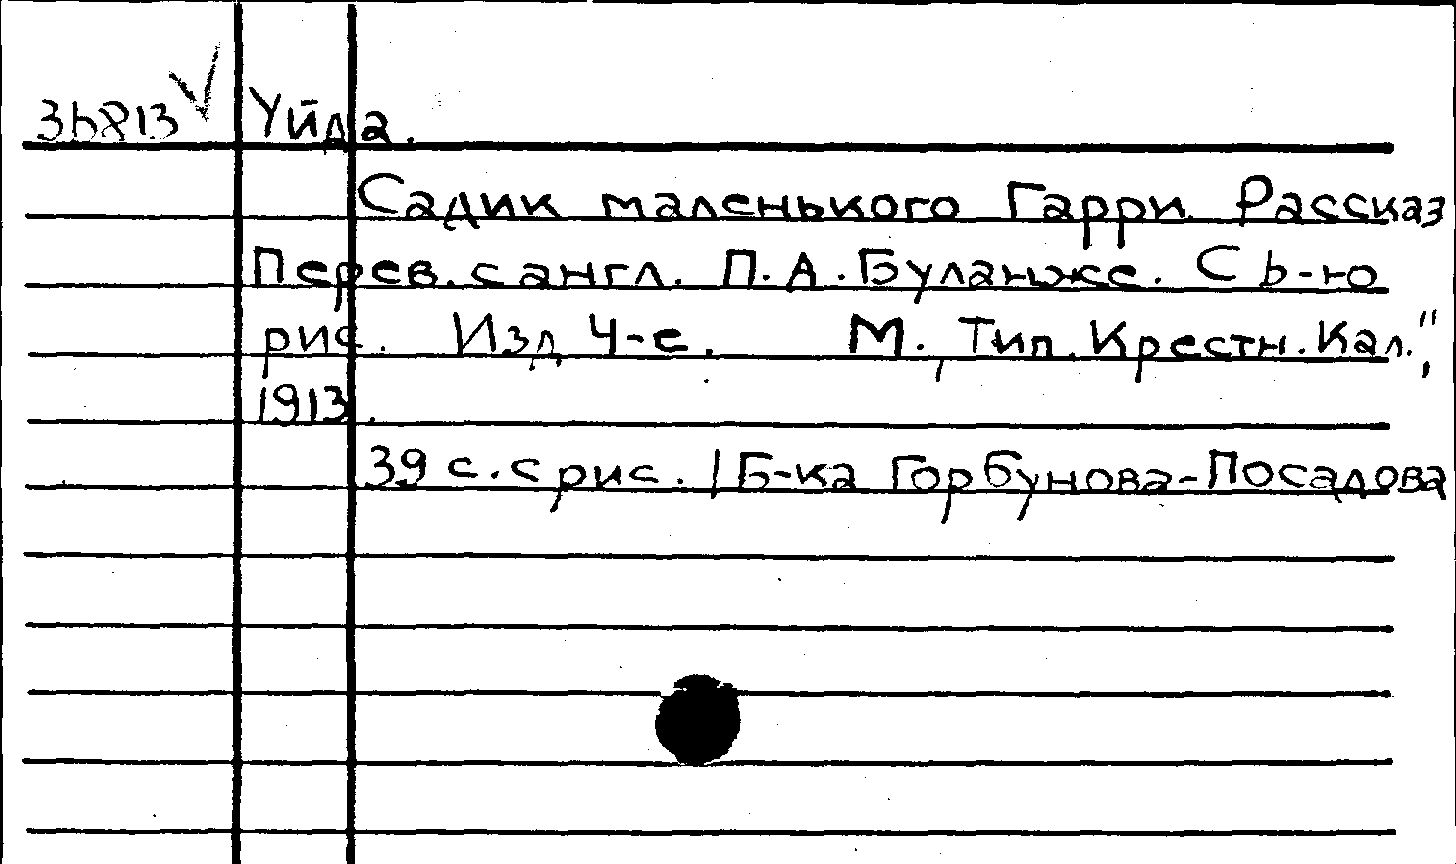 36813 Уйда.
Садик маленького Гарри. Рассказ
Перев. с англ. П. А. Буланже. С 6-ю
рис. Изд 4-е. М., Тип. Крестн. Кал.",
1913.
39 с. с рис. /Б-ка Горбунова-Посадова